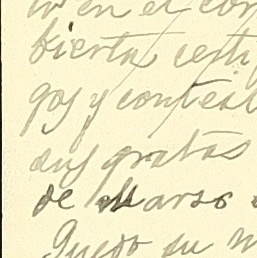 en el con
bierta certi
gos y contest
sus gratas
de Marzo
Quedo su